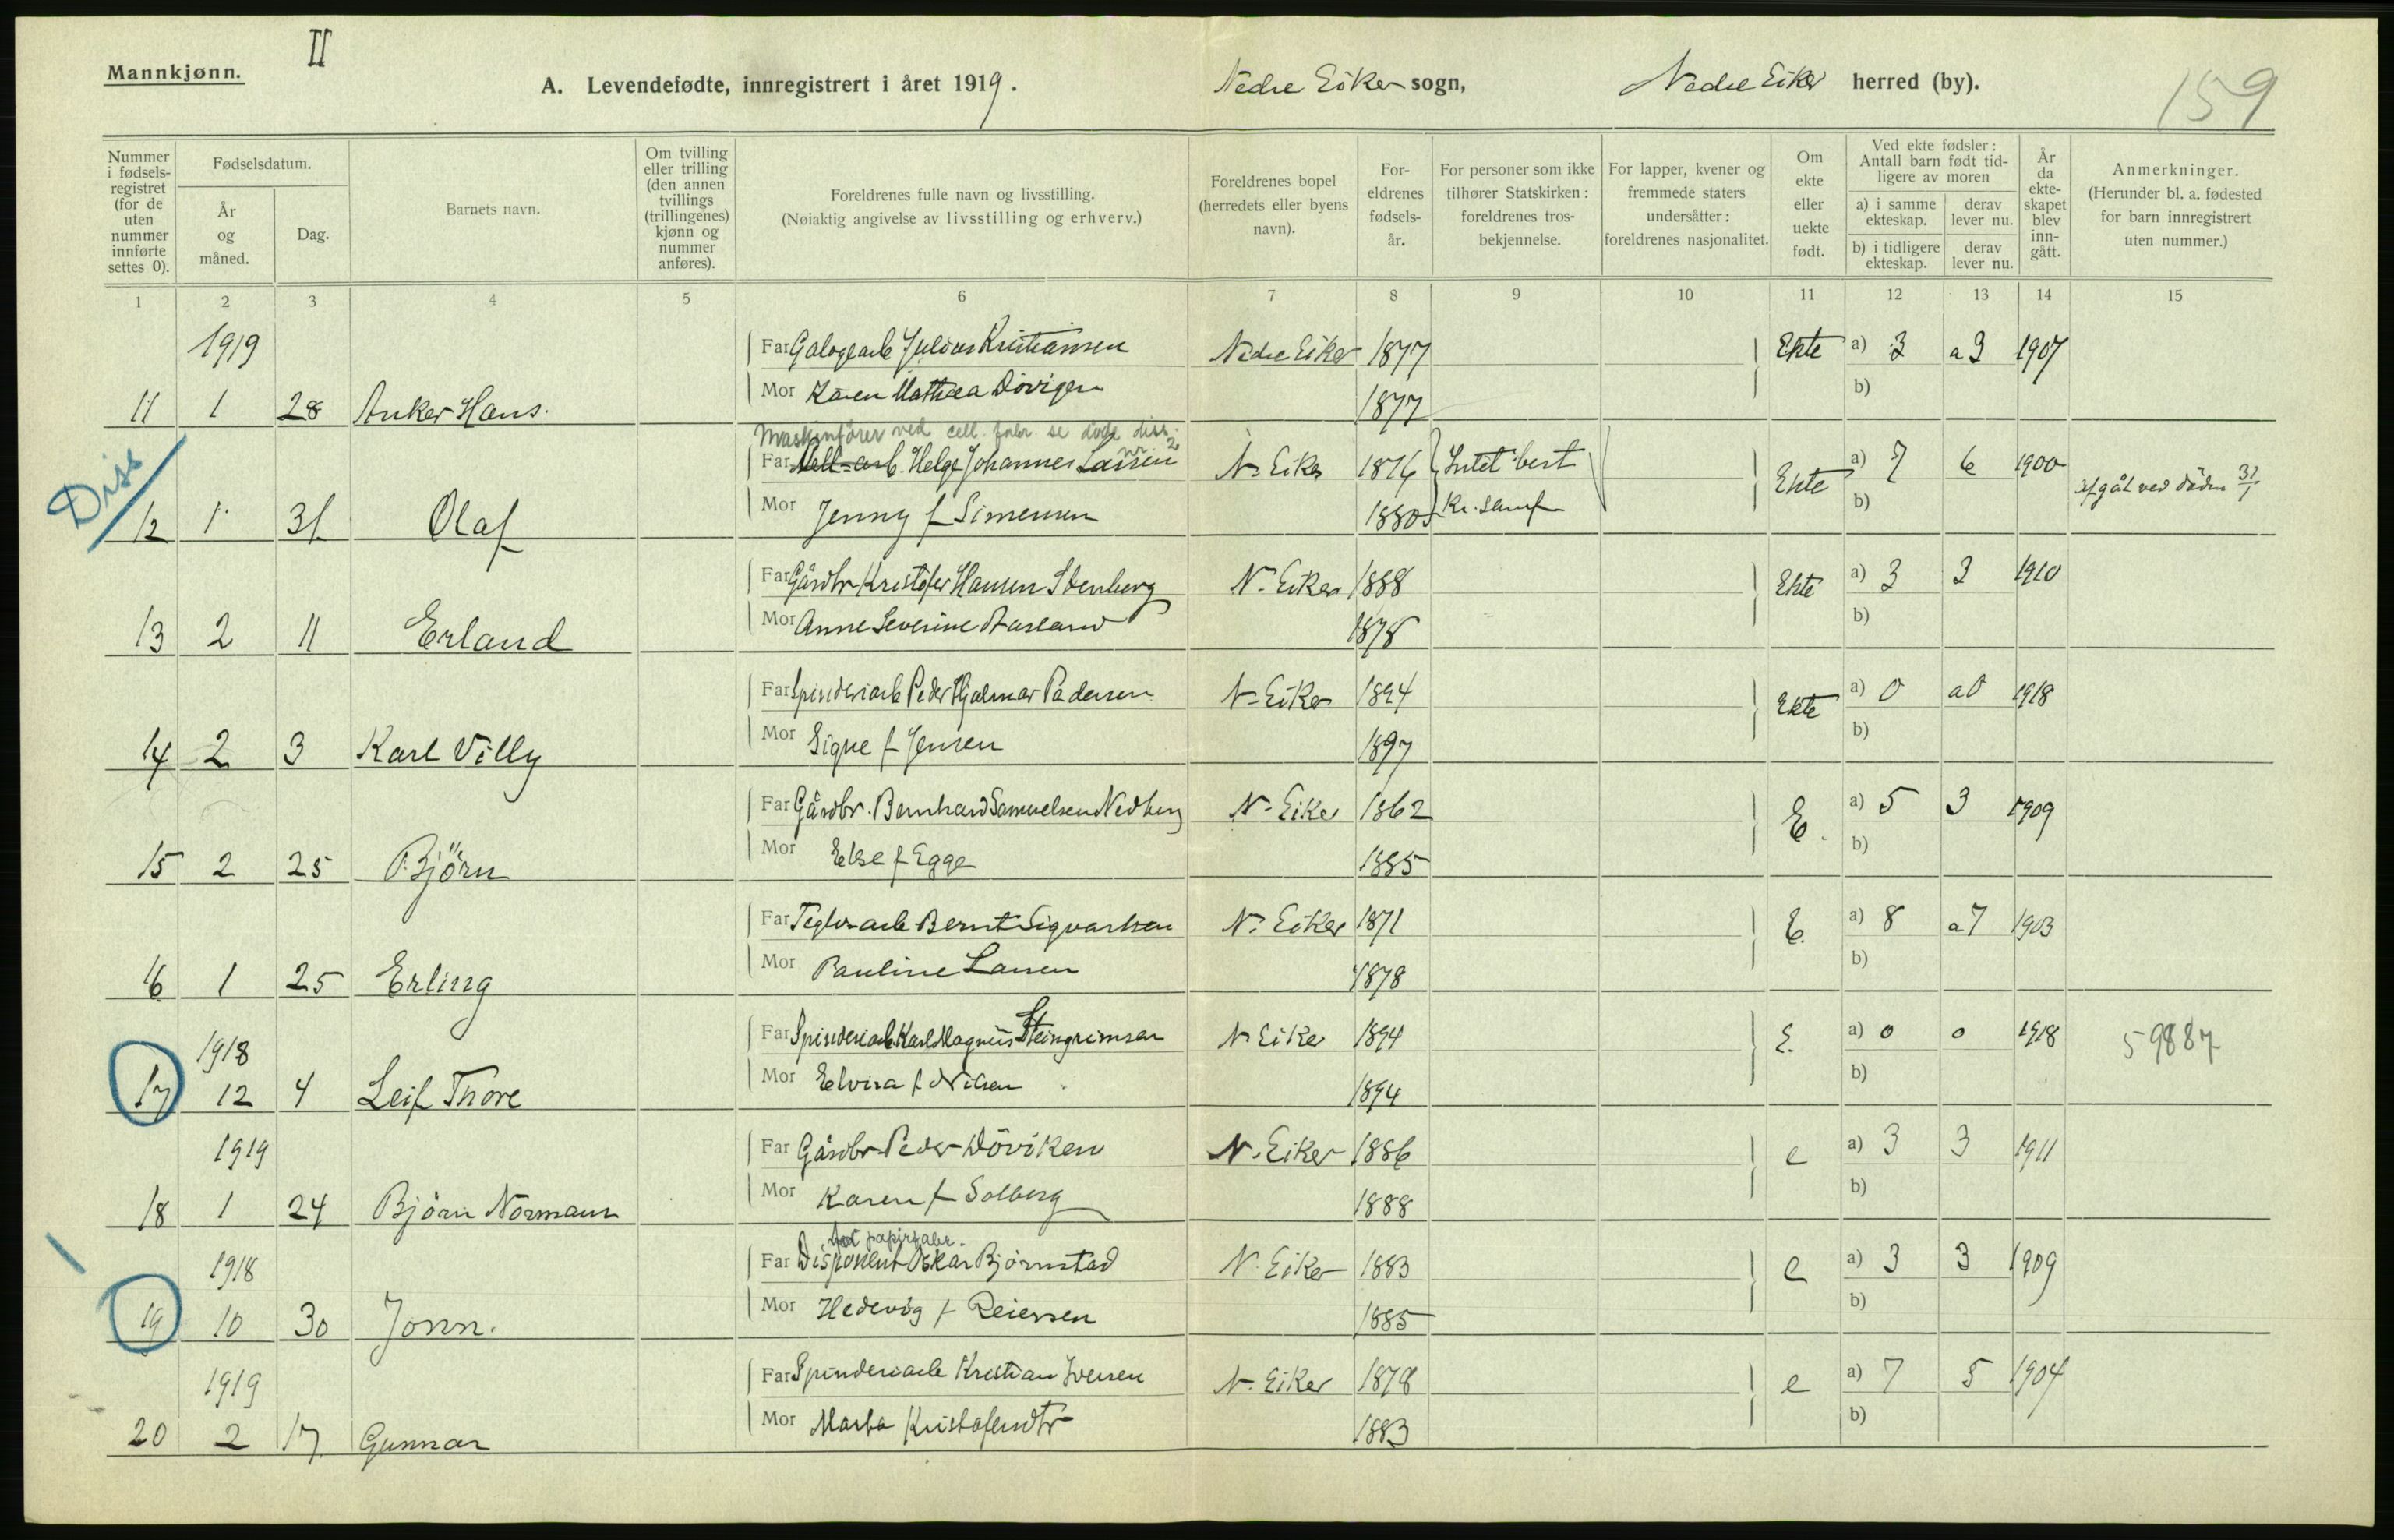 Mannkjønn.
II
A. Levendefødte, innregistrert i året 1919.
Nedre Eiker sogn,
Nedre Eiker herred (by).
159
Nummer i fødsels-registret (for de uten nummer innførte settes 0).
Fødselsdatum.
År og måned.
Dag.
Barnets navn.
Om tvilling eller trilling (den annen tvillings (trillingenes) kjønn og nummer anføres).
Foreldrenes fulle navn og livsstilling.
(Nøiaktig angivelse av livsstilling og erhverv.)
Foreldrenes bopel (herredets eller byens navn).
For-eldrenes fødsels-år.
For personer som ikke tilhører Statskirken: foreldrenes tros-bekjennelse.
For lapper, kvener og fremmede staters undersåtter: foreldrenes nasjonalitet.
Om ekte eller uekte født.
Ved ekte fødsler: Antall barn født tid-ligere av moren
a) i samme ekteskap.
derav lever nu.
b) i tidligere ekteskap.
derav lever nu.
År da ekte-skapet blev inn-gått.
Anmerkninger.
(Herunder bl. a. fødested for barn innregistrert uten nummer.)
1 2 3 4 5 6 7 8 9 10 11 12 13 14 15
1919
Far Galogearb Julius Kristiansen Nedre Eiker 1877 Ekte a) 3 a 3 1907
11 1 28 Anker Hans. Mor Karen Mathea Dövigen 1877 b)
Maskinfører ved cell. fabr. se døde diss. nr 2
Diss
Far Cell-arb. Helge Johannes Larsen N. Eiker 1876 Intet best Ekte a) 7 6 1900
12 1 31 Olaf Mor Jenny f Simensen 1880 Kr. samf b) Afgåt ved döden 31/1
Far Gårdbr Kristofer Hansen Stenberg N. Eiker 1888 Ekte a) 3 3 1910
13 2 11 Erland Mor Anne Severine Aasland 1878 b)
Far Spinderiarb Peder Hjalmar Pedersen N. Eiker 1894 Ekte a) 0 a 0 1918
14 2 3 Karl Villy Mor Signe f Jensen 1897 b)
Far Gårdbr. Bernhard Samuelsen Nedberg N. Eiker 1862 E. a) 5 3 1909
15 2 25 Björn Mor Else f Egge 1885 b)
Far Teglv-arb Bernt Sigvartsen N. Eiker 1871 E. a) 8 a 7 1903
16 1 25 Erling Mor Pauline Larsen 1878 b)
1918
Far Spinderiarb Karl Magnus Steingrimsen N Eiker 1894 E. a) 0 0 1918 59887
17 12 4 Leif Thore Mor Elvira f Nilsen 1894 b)
1919
Far Gårdbr Peder Döviken N. Eiker 1886 e a) 3 3 1911
18 1 24 Björn Normann Mor Karen f Solberg 1888 b)
ved papirfabr.
1918
Far Disponent Oskar Björnstad N. Eiker 1883 e a) 3 3 1909
19 10 30 Jonn. Mor Hedevig f Reiersen 1885 b)
1919
Far Spinderiarb Kristian Iversen N. Eiker 1878 e a) 7 5 1904
20 2 17 Gunnar Mor Marta Kristofersdtr 1883 b)